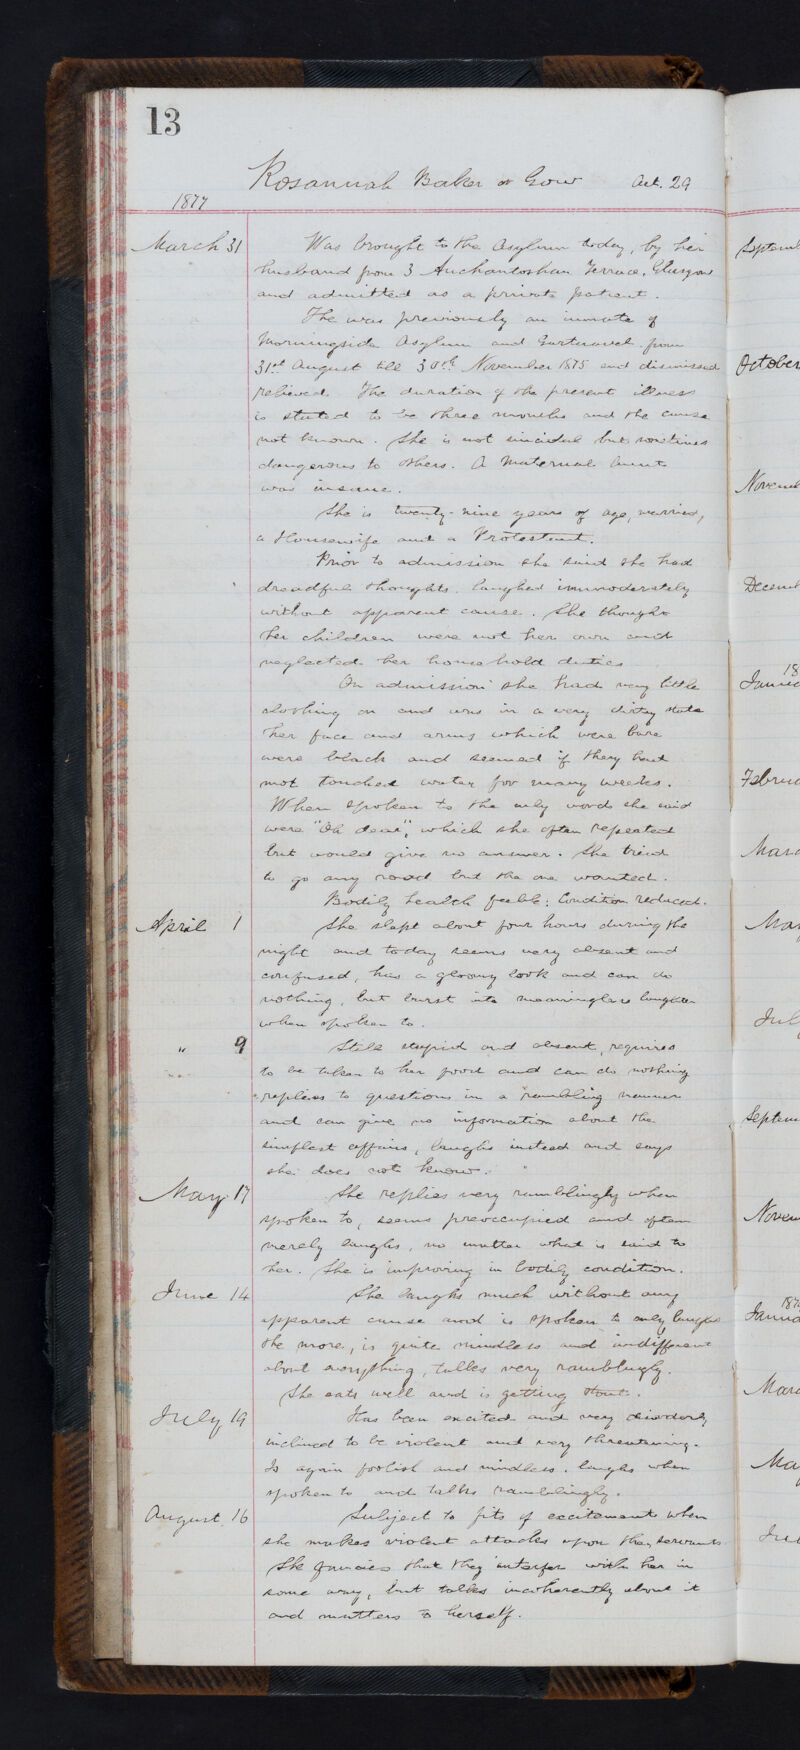 13
Rosannah Baker or Gow Aet. 29
1877
March 31 Was brought to the Asylum today, by her
husband from 3 Auchantoshan Terrace, Glasgow
and admitted as a private patient.
She was previously an inmate of
Morningside Asylum and Gartnavel from
31st August till 30th November 1875 and dismissed
relieved. The duration of the present illness
is stated to be three months and the cause
not known. She is not suicidal but sometimes
dangerous to others. A Maternal Aunt
was insane.
She is twenty-nine years of age, married,
a Housewife and a Protestant.
Prior to admission she said she had
dreadful thoughts. laughed immoderately
without apparent cause. She thought
her children were not her own and
neglected her household duties
On admission she had very little
clothing on and was in a very dirty state
her face and arms which were bare
were black and seemed if they had
not touched water for many weeks.
When spoken to the only words she said
were "Oh dear", which she often repeated
but would give no answer. She tried
to go any road but the one wanted.
Bodily health feeble: Condition reduced.
April 1 She slept about four hours during the
night and today seems very absent and
confused, has a gloomy look and can do
nothing, but burst into meaningless laughter
when spoken to.
" 9 Still stupid and absent, requires
to be taken to her food and can do nothing
replies to questions in a rambling manner
and can give no information about the
simplest affairs, laughs instead and says
she does not know.
May 17 She replies very ramblingly when
spoken to, seems preoccupied and often
merely laughs, no matter what is said to
her. She is improving in bodily condition.
June 14 She laughs much without any
apparent cause and is spoken to only laughs
the more, is quite mindless and indifferent
about everything, talks very ramblingly.
She eats well and is getting stout.
July 19 Has been excited and very disorderly
inclined to be violent and very threatening.
Is again foolish and mindless. laughs when
spoken to and talks ramblingly.
August 16 Subject to fits of excitement when
she makes violent attacks upon the servants
She fancies that they interfere with her in
some way, but talks incoherently about it
and mutters to herself.
Septemb
October
Novemb
Decemb
18
Janua
Februa
Marc
May
July
Septem
Novem
187
Janua
Marc
May
Ju